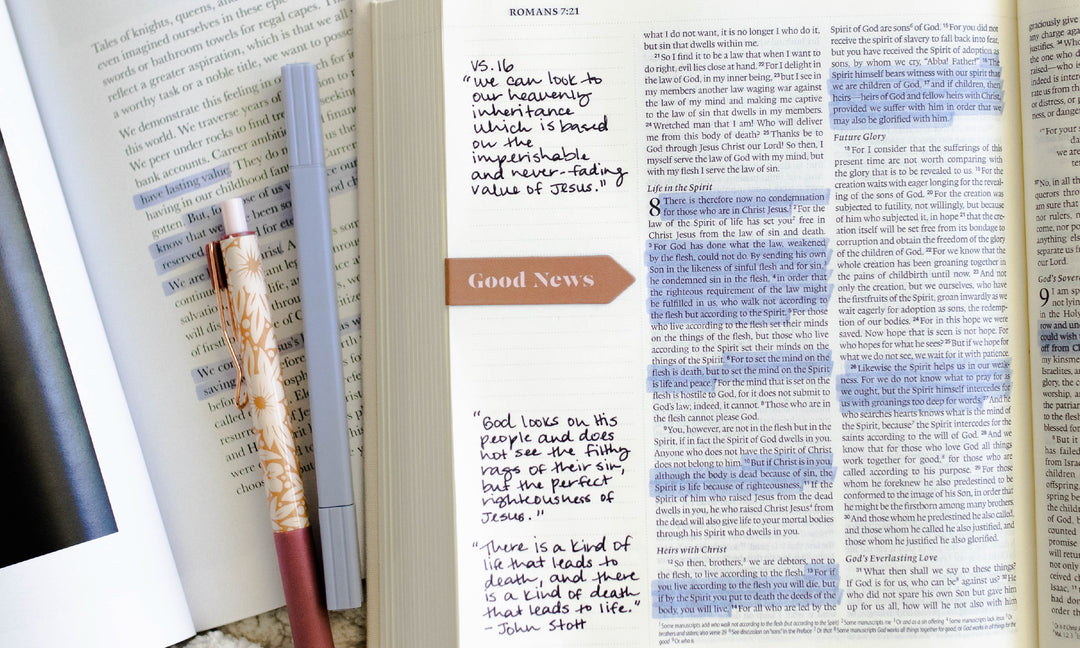 Tales of knights, queens, and
even imagined ourselves in these epic
swords or bathroom towels for regal capes. Th
reflect a greater aspiration, which is that we all
a worthy task or a noble title, we want to posse
We demonstrate this feeling in
this world. We traverse years of
We peer under rocks to find tre
bank accounts. Career ambiti
have lasting value. They do n
having in our childhood fan
gotten. But,
know that we
reserved for
We are
salvation
will dis
of firstf
We co
saving
before
called
resurre
and
were
choos
ROMANS 7:21
VS. 16
"we can look to
our heavenly
inheritance
which is based
on the
imperishable
and never-fading
value of Jesus."
Good News
"God looks on his
people and does
not see the filthy
rags of their sin,
but the perfect
righteousness of
Jesus."
"There is a kind of
life that leads to
death, and there
is a kind of death
that leads to life."
- John Stott
what I do not want, it is no longer I who do it,
but sin that dwells within me.
21 So I find it to be a law that when I want to
do right, evil lies close at hand. 22 For I delight in
the law of God, in my inner being, 23 but I see in
my members another law waging war against
the law of my mind and making me captive
to the law of sin that dwells in my members.
24 Wretched man that I am! Who will deliver
me from this body of death? 25 Thanks be to
God through Jesus Christ our Lord! So then, I
myself serve the law of God with my mind, but
with my flesh I serve the law of sin.
Life in the Spirit
8 There is therefore now no condemnation
for those who are in Christ Jesus. 2 For the
law of the Spirit of life has set you free in
Christ Jesus from the law of sin and death.
3 For God has done what the law, weakened
by the flesh, could not do. By sending his own
Son in the likeness of sinful flesh and for sin,
he condemned sin in the flesh, 4 in order that
the righteous requirement of the law might
be fulfilled in us, who walk not according to
the flesh but according to the Spirit. 5 For those
who live according to the flesh set their minds
on the things of the flesh, but those who live
according to the Spirit set their minds on the
things of the Spirit. 6 For to set the mind on the
flesh is death, but to set the mind on the Spirit
is life and peace. 7 For the mind that is set on the
flesh is hostile to God, for it does not submit to
God's law; indeed, it cannot. 8 Those who are in
the flesh cannot please God.
9 You, however, are not in the flesh but in the
Spirit, if in fact the Spirit of God dwells in you.
Anyone who does not have the Spirit of Christ
does not belong to him. 10 But if Christ is in you,
although the body is dead because of sin, the
Spirit is life because of righteousness. 11 If the
Spirit of him who raised Jesus from the dead
dwells in you, he who raised Christ Jesus from
the dead will also give life to your mortal bodies
through his Spirit who dwells in you.
Heirs with Christ
12 So then, brothers, we are debtors, not to
the flesh, to live according to the flesh. 13 For if
you live according to the flesh you will die, but
if by the Spirit you put to death the deeds of the
body, you will live. 14 For all who are led by the
Spirit of God are sons of God. 15 For you did not
receive the spirit of slavery to fall back into fear,
but you have received the Spirit of adoption as
sons, by whom we cry, "Abba! Father!" 16 The
Spirit himself bears witness with our spirit that
we are children of God, 17 and if children, then
heirs—heirs of God and fellow heirs with Christ,
provided we suffer with him in order that we
may also be glorified with him.
Future Glory
18 For I consider that the sufferings of this
present time are not worth comparing with
the glory that is to be revealed to us. 19 For the
creation waits with eager longing for the reveal-
ing of the sons of God. 20 For the creation was
subjected to futility, not willingly, but because
of him who subjected it, in hope 21 that the cre-
ation itself will be set free from its bondage to
corruption and obtain the freedom of the glory
of the children of God. 22 For we know that the
whole creation has been groaning together in
the pains of childbirth until now. 23 And not
only the creation, but we ourselves, who have
the firstfruits of the Spirit, groan inwardly as we
wait eagerly for adoption as sons, the redemp-
tion of our bodies. 24 For in this hope we were
saved. Now hope that is seen is not hope. For
who hopes for what he sees? 25 But if we hope for
what we do not see, we wait for it with patience.
26 Likewise the Spirit helps us in our weak-
ness. For we do not know what to pray for as
we ought, but the Spirit himself intercedes for
us with groanings too deep for words. 27 And he
who searches hearts knows what is the mind of
the Spirit, because the Spirit intercedes for the
saints according to the will of God. 28 And we
know that for those who love God all things
work together for good, for those who are
called according to his purpose. 29 For those
whom he foreknew he also predestined to be
conformed to the image of his Son, in order that
he might be the firstborn among many brothers.
30 And those whom he predestined he also called,
and those whom he called he also justified, and
those whom he justified he also glorified.
God's Everlasting Love
31 What then shall we say to these things?
If God is for us, who can be against us? 32 He
who did not spare his own Son but gave him
up for us all, how will he not also with him